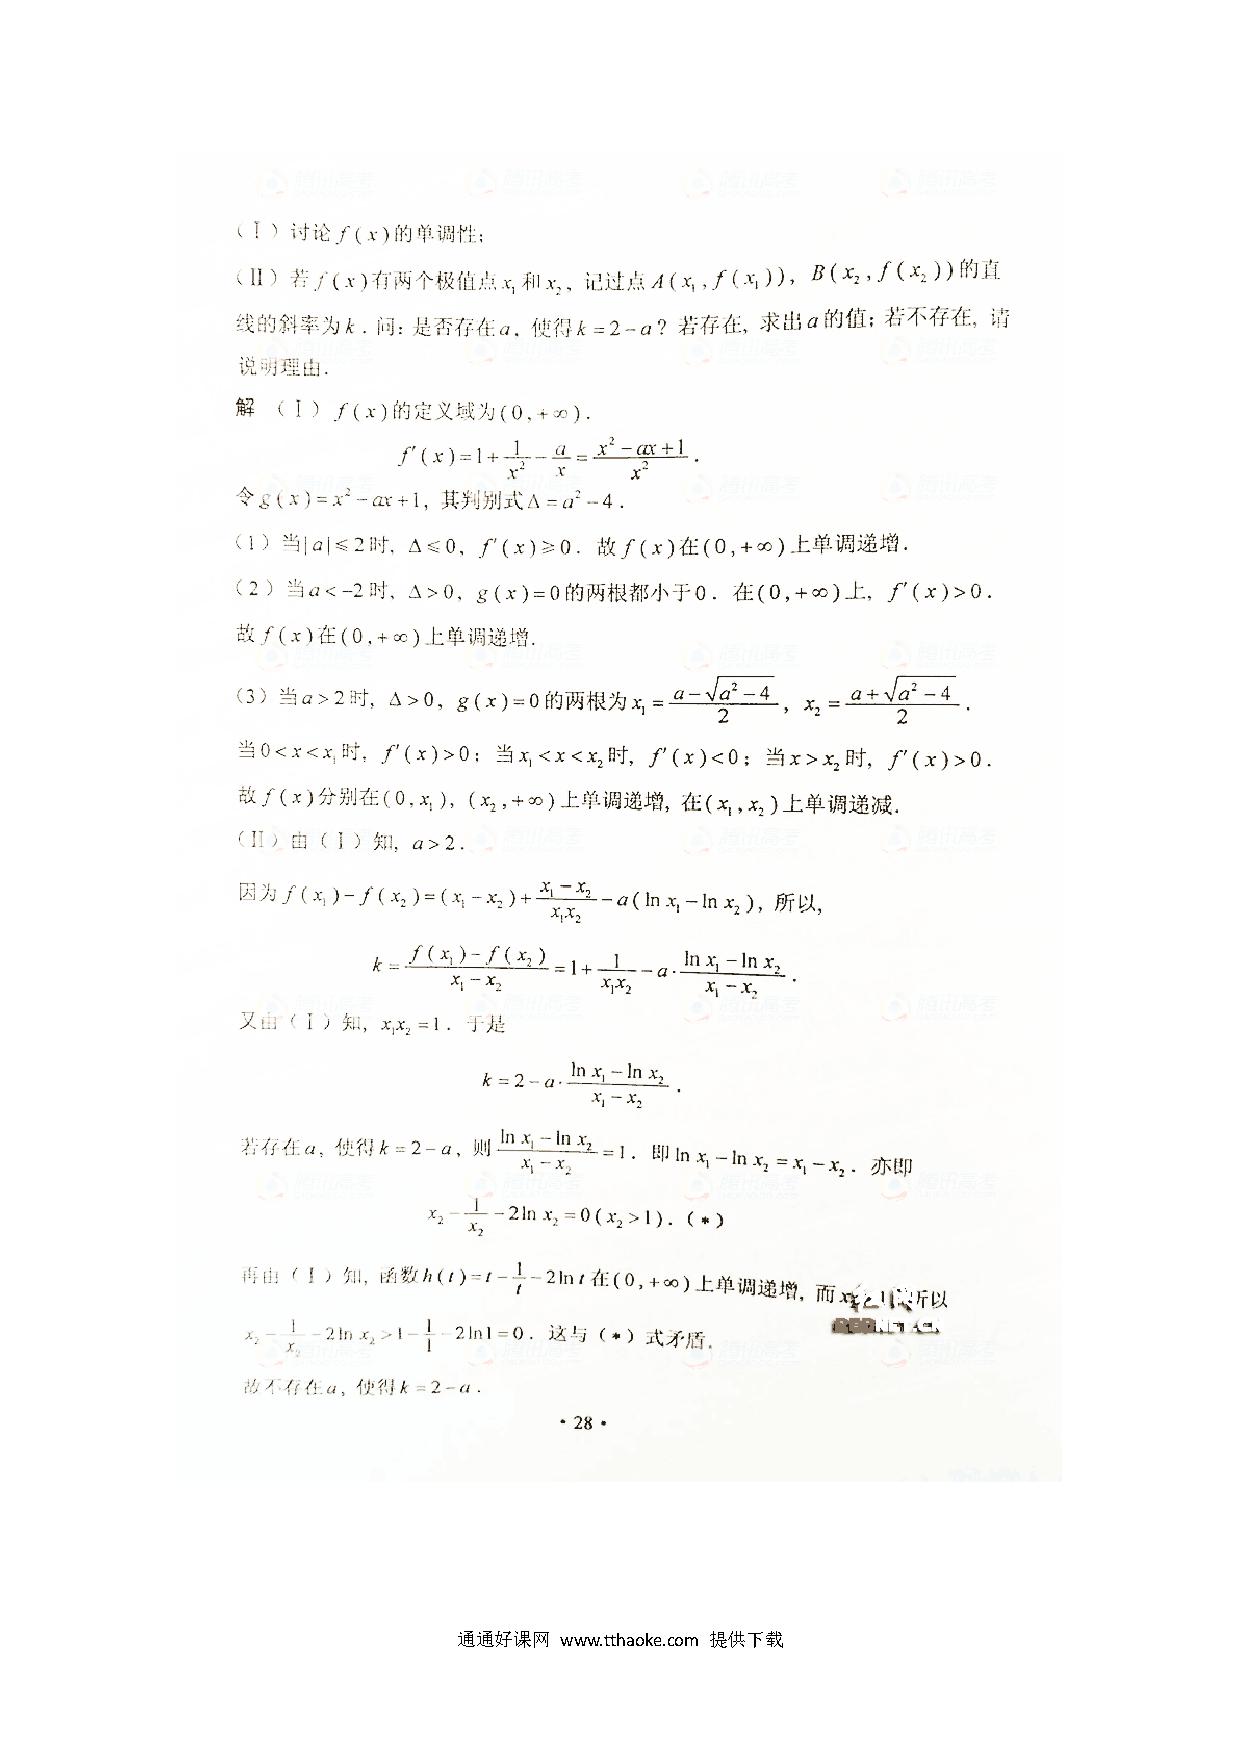 (Ⅰ)讨论f(x)的单调性;
(Ⅱ)若f(x)有两个极值点x₁和x₂, 记过点A(x₁, f(x₁)), B(x₂, f(x₂))的直
线的斜率为k. 问: 是否存在a, 使得k=2-a? 若存在, 求出a的值; 若不存在, 请
说明理由.
解 (Ⅰ)f(x)的定义域为(0,+∞).
f′(x)=1+1/x²-a/x=(x²-ax+1)/x².
令g(x)=x²-ax+1, 其判别式Δ=a²-4.
(1)当|a|≤2时, Δ≤0, f′(x)≥0. 故f(x)在(0,+∞)上单调递增.
(2)当a<-2时, Δ>0, g(x)=0的两根都小于0. 在(0,+∞)上, f′(x)>0.
故f(x)在(0,+∞)上单调递增.
(3)当a>2时, Δ>0, g(x)=0的两根为x₁=(a-√(a²-4))/2, x₂=(a+√(a²-4))/2.
当0<x<x₁时, f′(x)>0; 当x₁<x<x₂时, f′(x)<0; 当x>x₂时, f′(x)>0.
故f(x)分别在(0,x₁), (x₂,+∞)上单调递增, 在(x₁,x₂)上单调递减.
(Ⅱ)由(Ⅰ)知, a>2.
因为f(x₁)-f(x₂)=(x₁-x₂)+(x₁-x₂)/(x₁x₂)-a(ln x₁-ln x₂), 所以,
k=(f(x₁)-f(x₂))/(x₁-x₂)=1+1/(x₁x₂)-a·(ln x₁-ln x₂)/(x₁-x₂).
又由(Ⅰ)知, x₁x₂=1. 于是
k=2-a·(ln x₁-ln x₂)/(x₁-x₂).
若存在a, 使得k=2-a, 则(ln x₁-ln x₂)/(x₁-x₂)=1. 即ln x₁-ln x₂=x₁-x₂. 亦即
x₂-1/x₂-2ln x₂=0(x₂>1). (*)
再由(Ⅰ)知, 函数h(t)=t-1/t-2ln t在(0,+∞)上单调递增, 而x₂>1, 所以
x₂-1/x₂-2ln x₂>1-1/1-2ln1=0. 这与(*)式矛盾.
故不存在a, 使得k=2-a.
·28·
通通好课网 www.tthaoke.com 提供下载